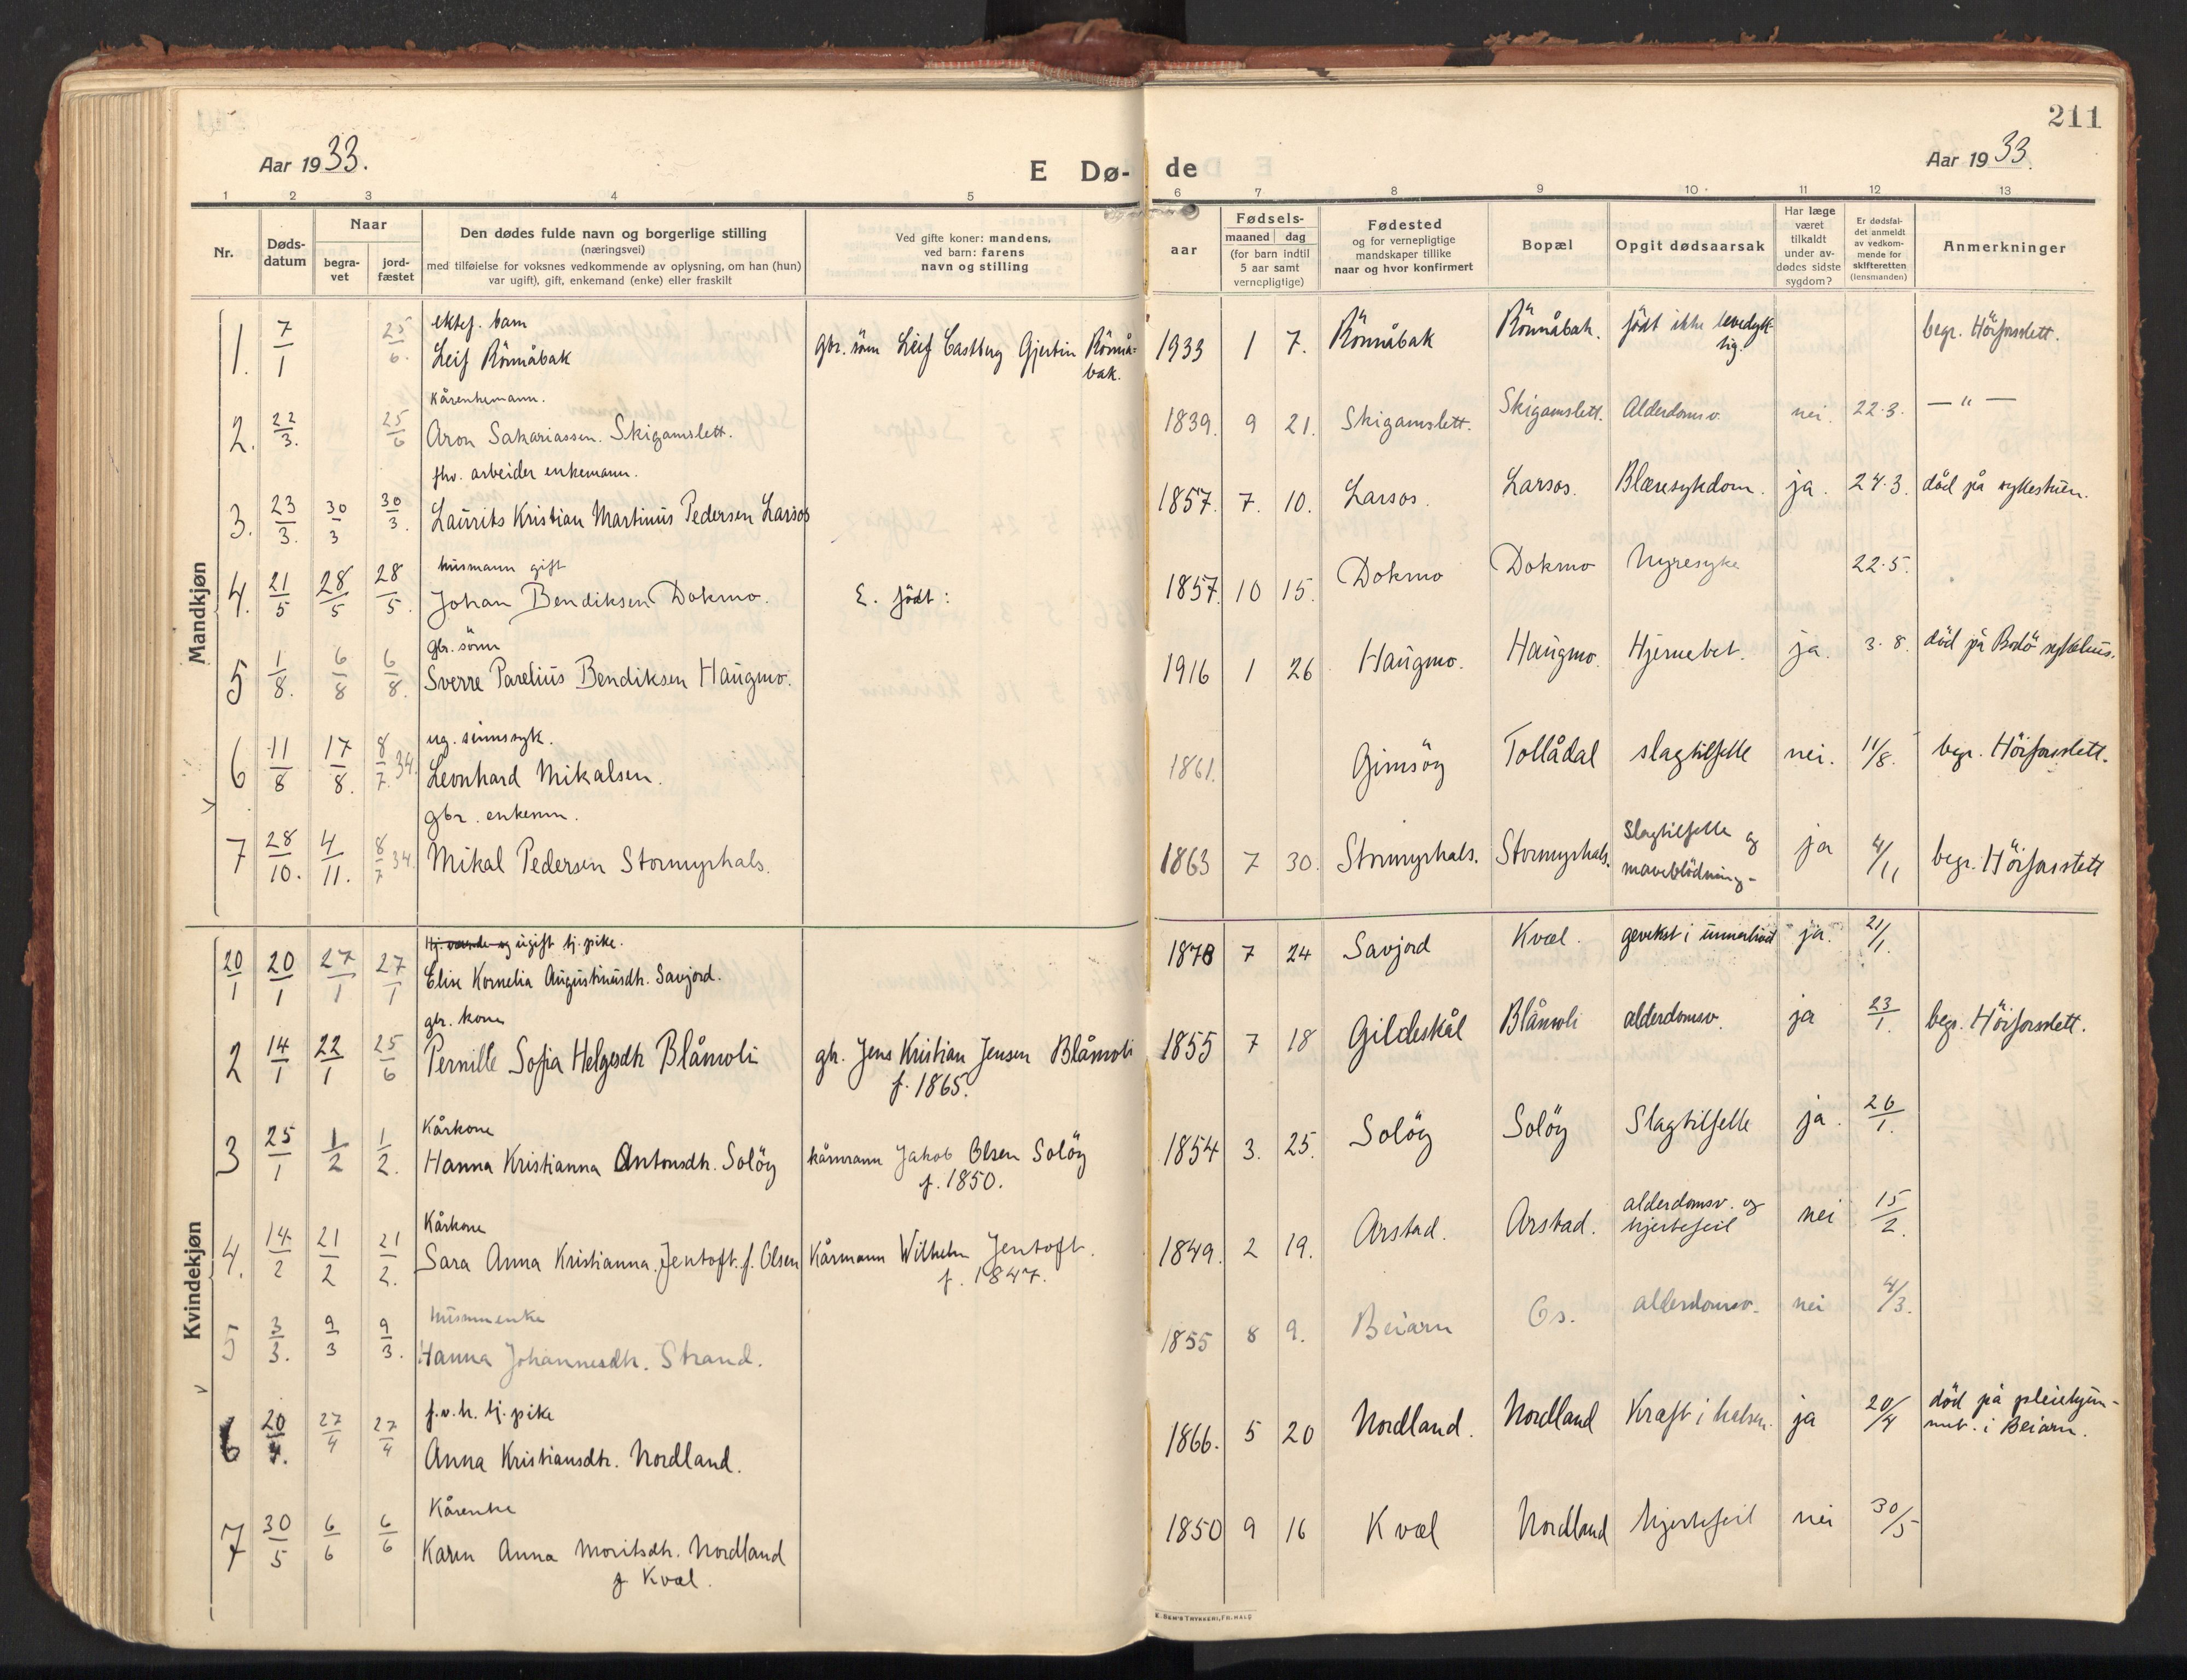 211
Aar 1933.
E Dø-de
Aar 1933.
1 2 3 4 5 6 7 8 9 10 11 12 13
Nr.
Døds-
datum
Naar
begra-
vet
jord-
fæstet
Den dødes fulde navn og borgerlige stilling
(næringsvei)
med tilføielse for voksnes vedkommende av oplysning, om han (hun)
var ugift), gift, enkemand (enke) eller fraskilt
Ved gifte koner: mandens,
ved barn: farens
navn og stilling
Fødsels-
aar
maaned dag
(for barn indtil
5 aar samt
vernepligtige)
Fødested
og for vernepligtige
mandskaper tillike
naar og hvor konfirmert
Bopæl
Opgit dødsaarsak
Har læge
været
tilkaldt
under av-
dødes sidste
sygdom?
Er dødsfal-
det anmeldt
av vedkom-
mende for
skifteretten
(lensmanden)
Anmerkninger
Mandkjøn
ektef. barn
1. 7/1 25/6. Leif Rönnåbak gbr. sönn Leif Castberg Gjertin Rönnå-
bak. 1933 1 7. Rönnåbak Rönnåbak. födt ikke levedyk-
tig. begr. Höiforsslett.
Kårenkemann.
2. 22/3. 25/6 Aron Sakariassen. Skigamslett. 1839. 9 21. Skigamslett. Skigamslett. Alderdomsv. nei. 22.3. — " —
fhv. arbeider enkemann.
3. 23/3. 30/3 30/3. Laurits Kristian Martinus Pedersen Larsos 1857. 7. 10. Larsos. Larsos. Blæresykdom. ja. 24.3. död på sykestuen.
husmann gift
4. 21/5 28/5 28/5. Johan Bendiksen Dokmo. E. födt: 1857. 10 15. Dokmo Dokmo Nyresyke 22.5.
gbr. sönn
5 1/8. 6/8 6/8. Sverre Parelius Bendiksen Haugmo. 1916 1 26 Haugmo. Haugmo. Hjernebet. ja. 3.8. död på Bodö sykehus.
ug. sinnssyk.
6 11/8 17/8. 8/7. 34. Leonhard Mikalsen. 1861. Gimsöy Tollådal slagtilfelle nei. 11/8. begr. Höiforsslett.
gbr. enkem.
7 28/10. 4/11. 8/7 34. Mikal Pedersen Stormyrhals. 1863 7 30. Stormyrhals. Stormyrhals. Slagtilfelle og
maveblödning- ja 4/11 begr. Höiforsslett
Kvindekjøn
ugift tj. pike.
20/1 20/1 27/1 27/1 Elise Kornelia Augustinusdtr. Savjord. 1878 7 24 Savjord Kvæl. gevekst i ja. 21/1.
gbr. kone
2 14/1 22/1 25/6 Pernille Sofia Helgesdtr Blåmoli gbr. Jens Kristian Jensen Blåmoli
f. 1865. 1855 7 18 Gildeskål Blåmoli alderdomsv. ja 23/1. begr. Höiforsslett.
Kårkone
3 25/1 1/2 1/2. Hanna Kristianna Antonsdtr. Solöy kårmann Jakob Olsen Solöy
f. 1850. 1854 3. 25. Solöy Solöy Slagtilfelle ja. 26/1.
Kårkone
4. 14/2 21/2 21/2. Sara Anna Kristianna. Jentoft. f. Olsen Kårmann Wilhelm Jentoft.
f. 1847. 1849. 2 19. Arstad. Arstad. alderdomsv. og
hjertefeil nei 15/2.
husmenke
5 3/3. 9/3 9/3. Hanna Johannesdtr. Strand. 1855 8 9. Beiarn Os. alderdomsv. nei 4/3.
f.v.h. tj. pike
6 20/4. 27/4 27/4 Anna Kristiansdtr. Nordland. 1866. 5 20 Nordland. Nordland Kræft i halsen. ja 20/4 död på pleiehjem-
met. i Beiarn.
Kårenke
7 30/5 6/6 6/6 Karen Anna Moritsdtr. Nordland
f Kvæl. 1850 9 16 Kvæl Nordland hjertefeil nei 30/5
E. SEM'S TRYKKERI, FR.HALD